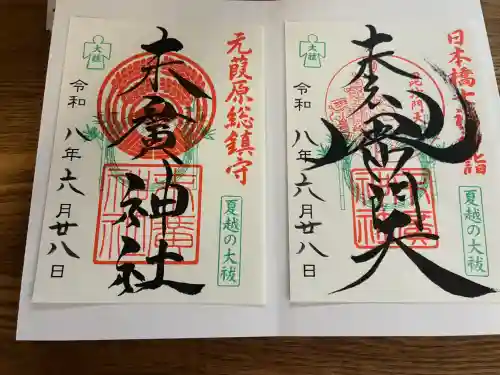 元葭原総鎮守
夏越の大祓
末廣神社
大祓
令和八年六月廿八日
日本橋七福神詣
夏越の大祓
毘沙門天
大祓
令和八年六月廿八日